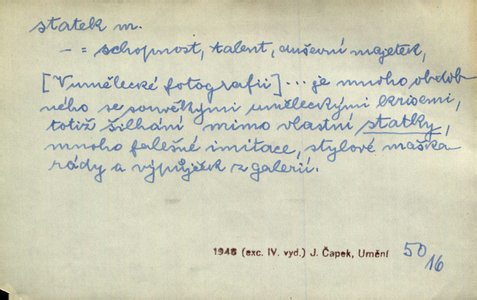 statek m.
– = schopnost, talent, duševní majetek,
[V umělecké fotografii] ... je mnoho obdob-
ného se soudobými uměleckými krisemi,
totiž šilhání mimo vlastní statky,
mnoho falešné imitace, stylové maška-
rády a výpůjček z galerií.
1948 (exc. IV. vyd.) J. Čapek, Umění 50
16